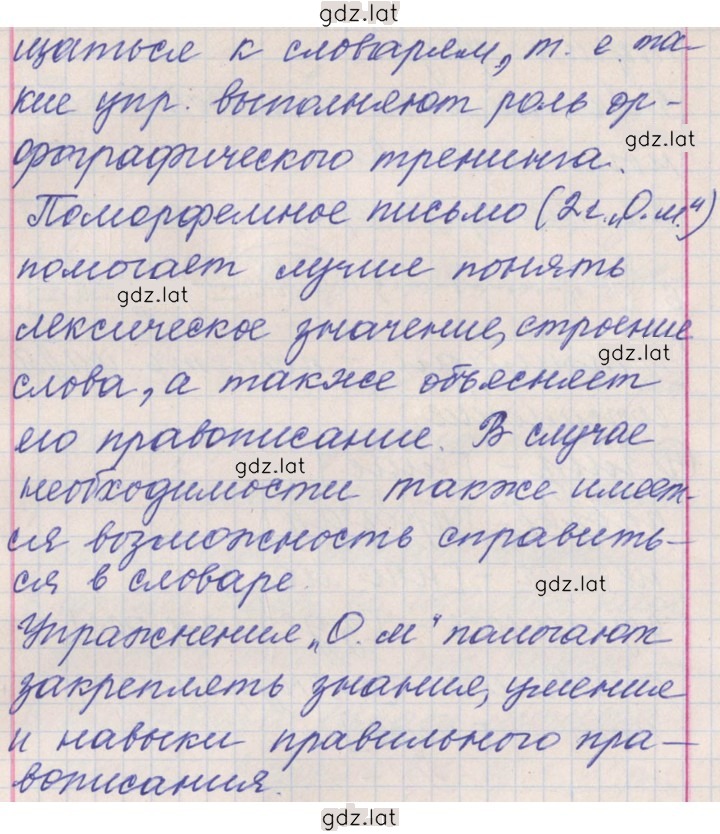 gdz.lat
щаться к словарям, т. е. та-
кие упр. выполняют роль ор-
gdz.lat
фографического тренинга.
Поморфемное письмо (2г. „О.м.")
помогает лучше понять
gdz.lat
лексическое значение, строение
gdz.lat
слова, а также объясняет
его правописание. В случае
gdz.lat
необходимости также имеет-
ся возможность справить-
ся в словаре.
gdz.lat
Упражнения „О.м" помогают
закреплять знания, умения
и навыки правильного пра-
вописания.
gdz.lat